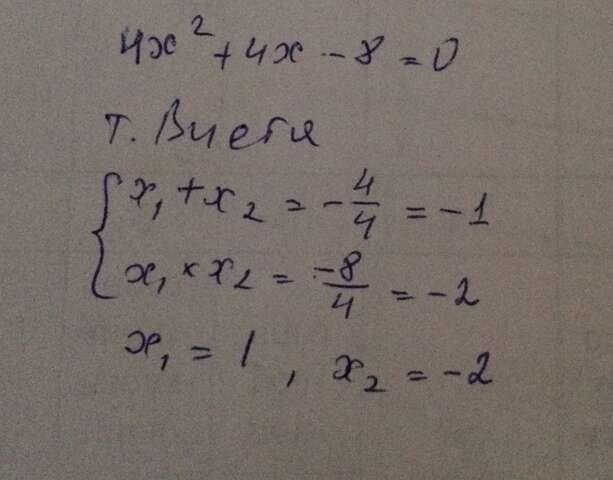 4x² + 4x - 8 = 0
т. Виета
{ x₁ + x₂ = -4/4 = -1
x₁ × x₂ = -8/4 = -2
x₁ = 1 , x₂ = -2